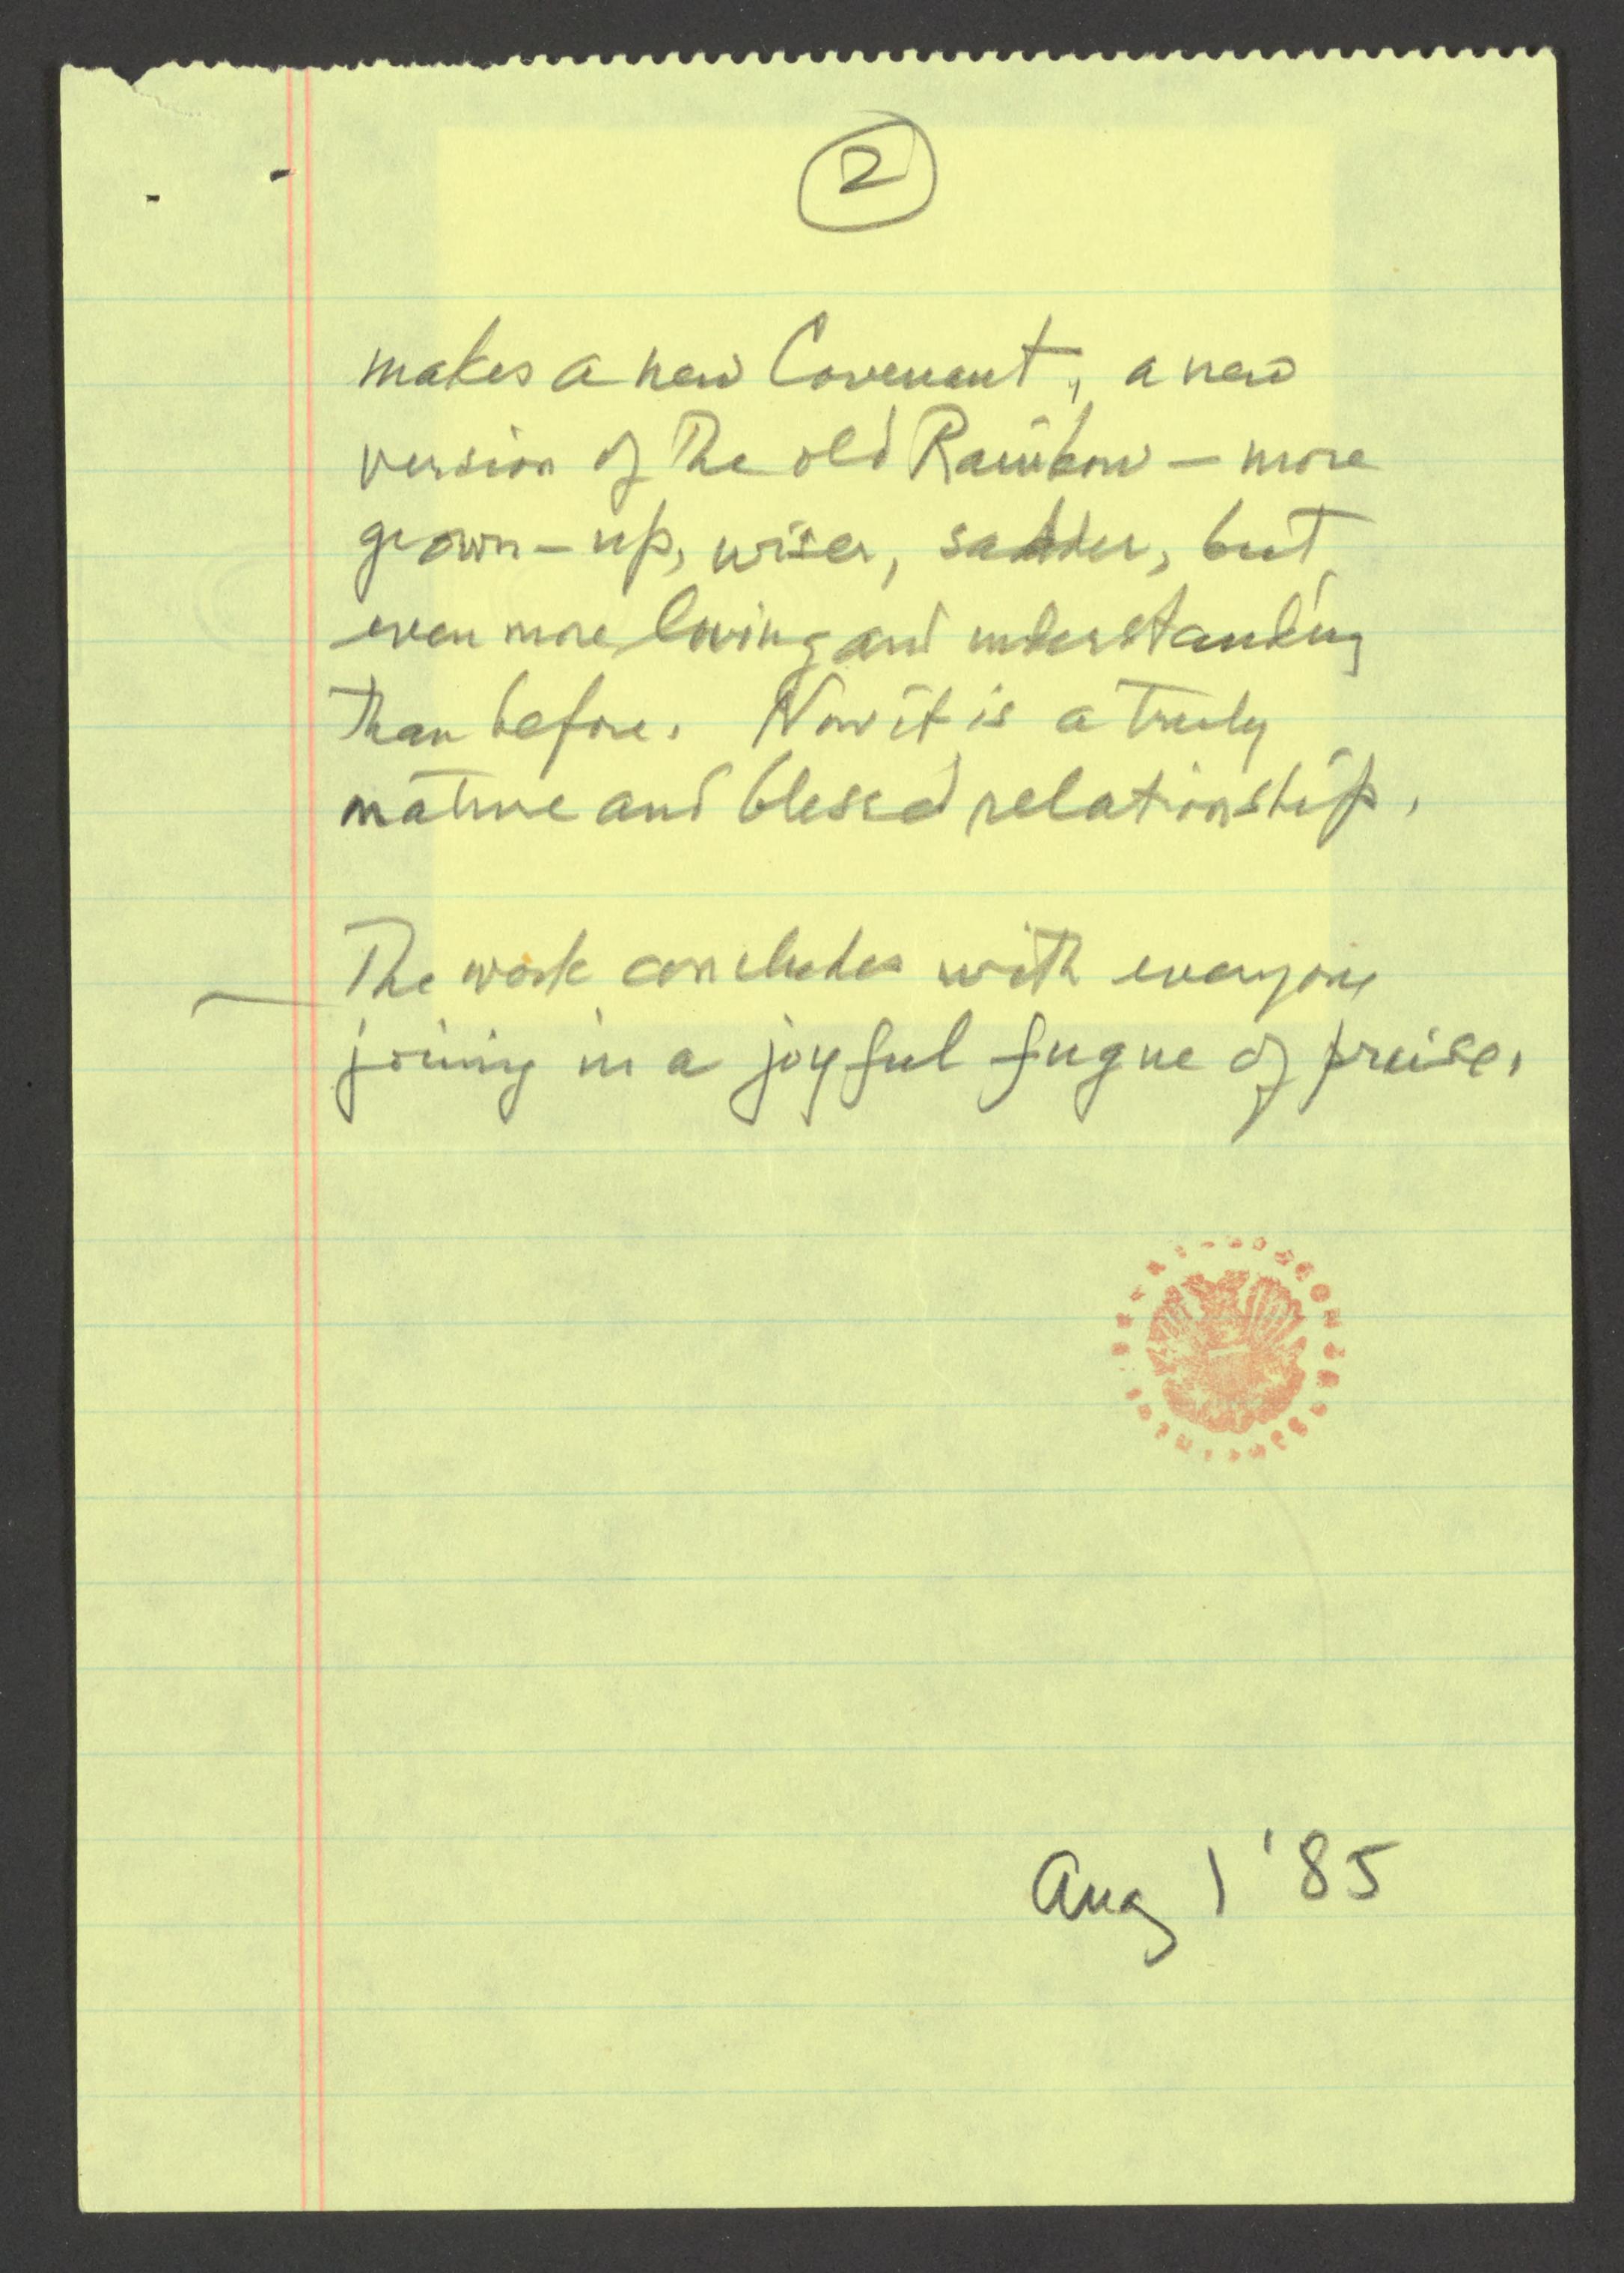 2
makes a new Covenant, a new
version of the old Rainbow — more
grown-up, wiser, sadder, but
even more loving and understanding
than before. Now it is a truly
mature and blessed relationship.
The work concludes with everyone
joining in a joyful fugue of praise.
Aug 1 '85